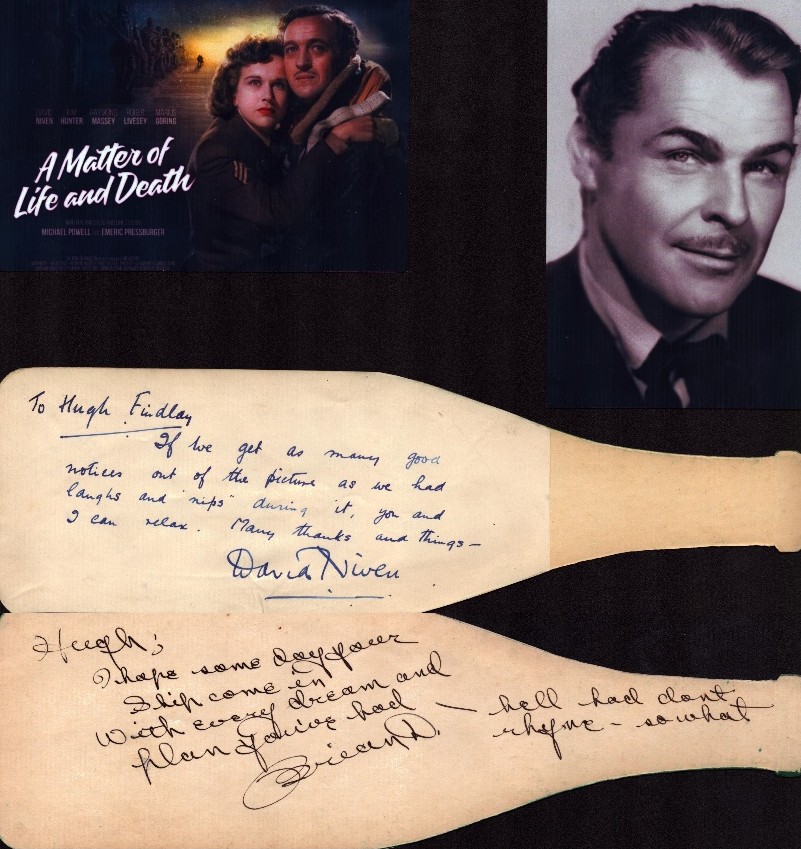 DAVID NIVEN KIM HUNTER RAYMOND MASSEY ROGER LIVESEY MARIUS GORING
A Matter of
Life and Death
MICHAEL POWELL EMERIC PRESSBURGER
To Hugh Findlay
If we get as many good
notices out of the picture as we had
laughs and "nips" during it, you and
I can relax. Many thanks and things—
David Niven
Hugh;
I hope some day your
Ship come in
With every dream and
plan you've had — hell had dont
rhyme - so what
Brian D.